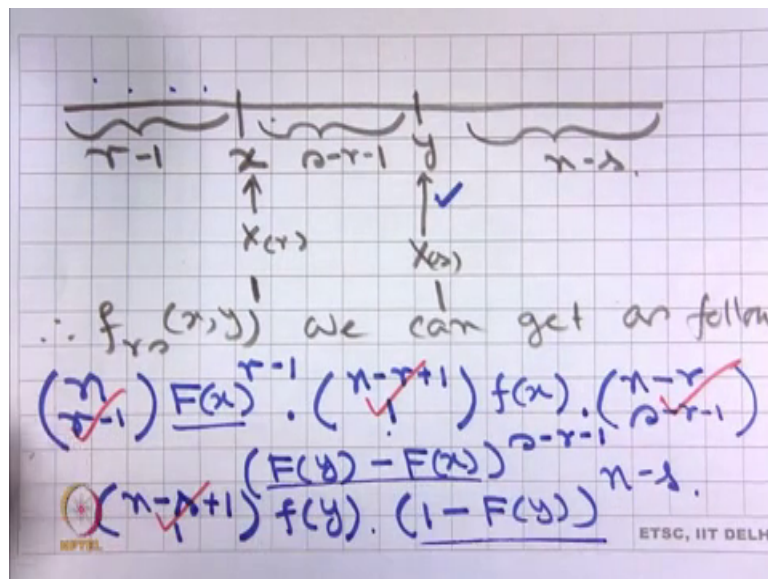 r-1 x s-r-1 y n-s.
X(r) X(s)
∴ f_rs(x,y) we can get as follow
(n r-1) F(x)^r-1 . (n-r+1 1) f(x) . (n-r s-r-1)
(F(y) - F(x))^s-r-1
(n-s+1 1) f(y) . (1 - F(y))^n-s.
NPTEL
ETSC, IIT DELH